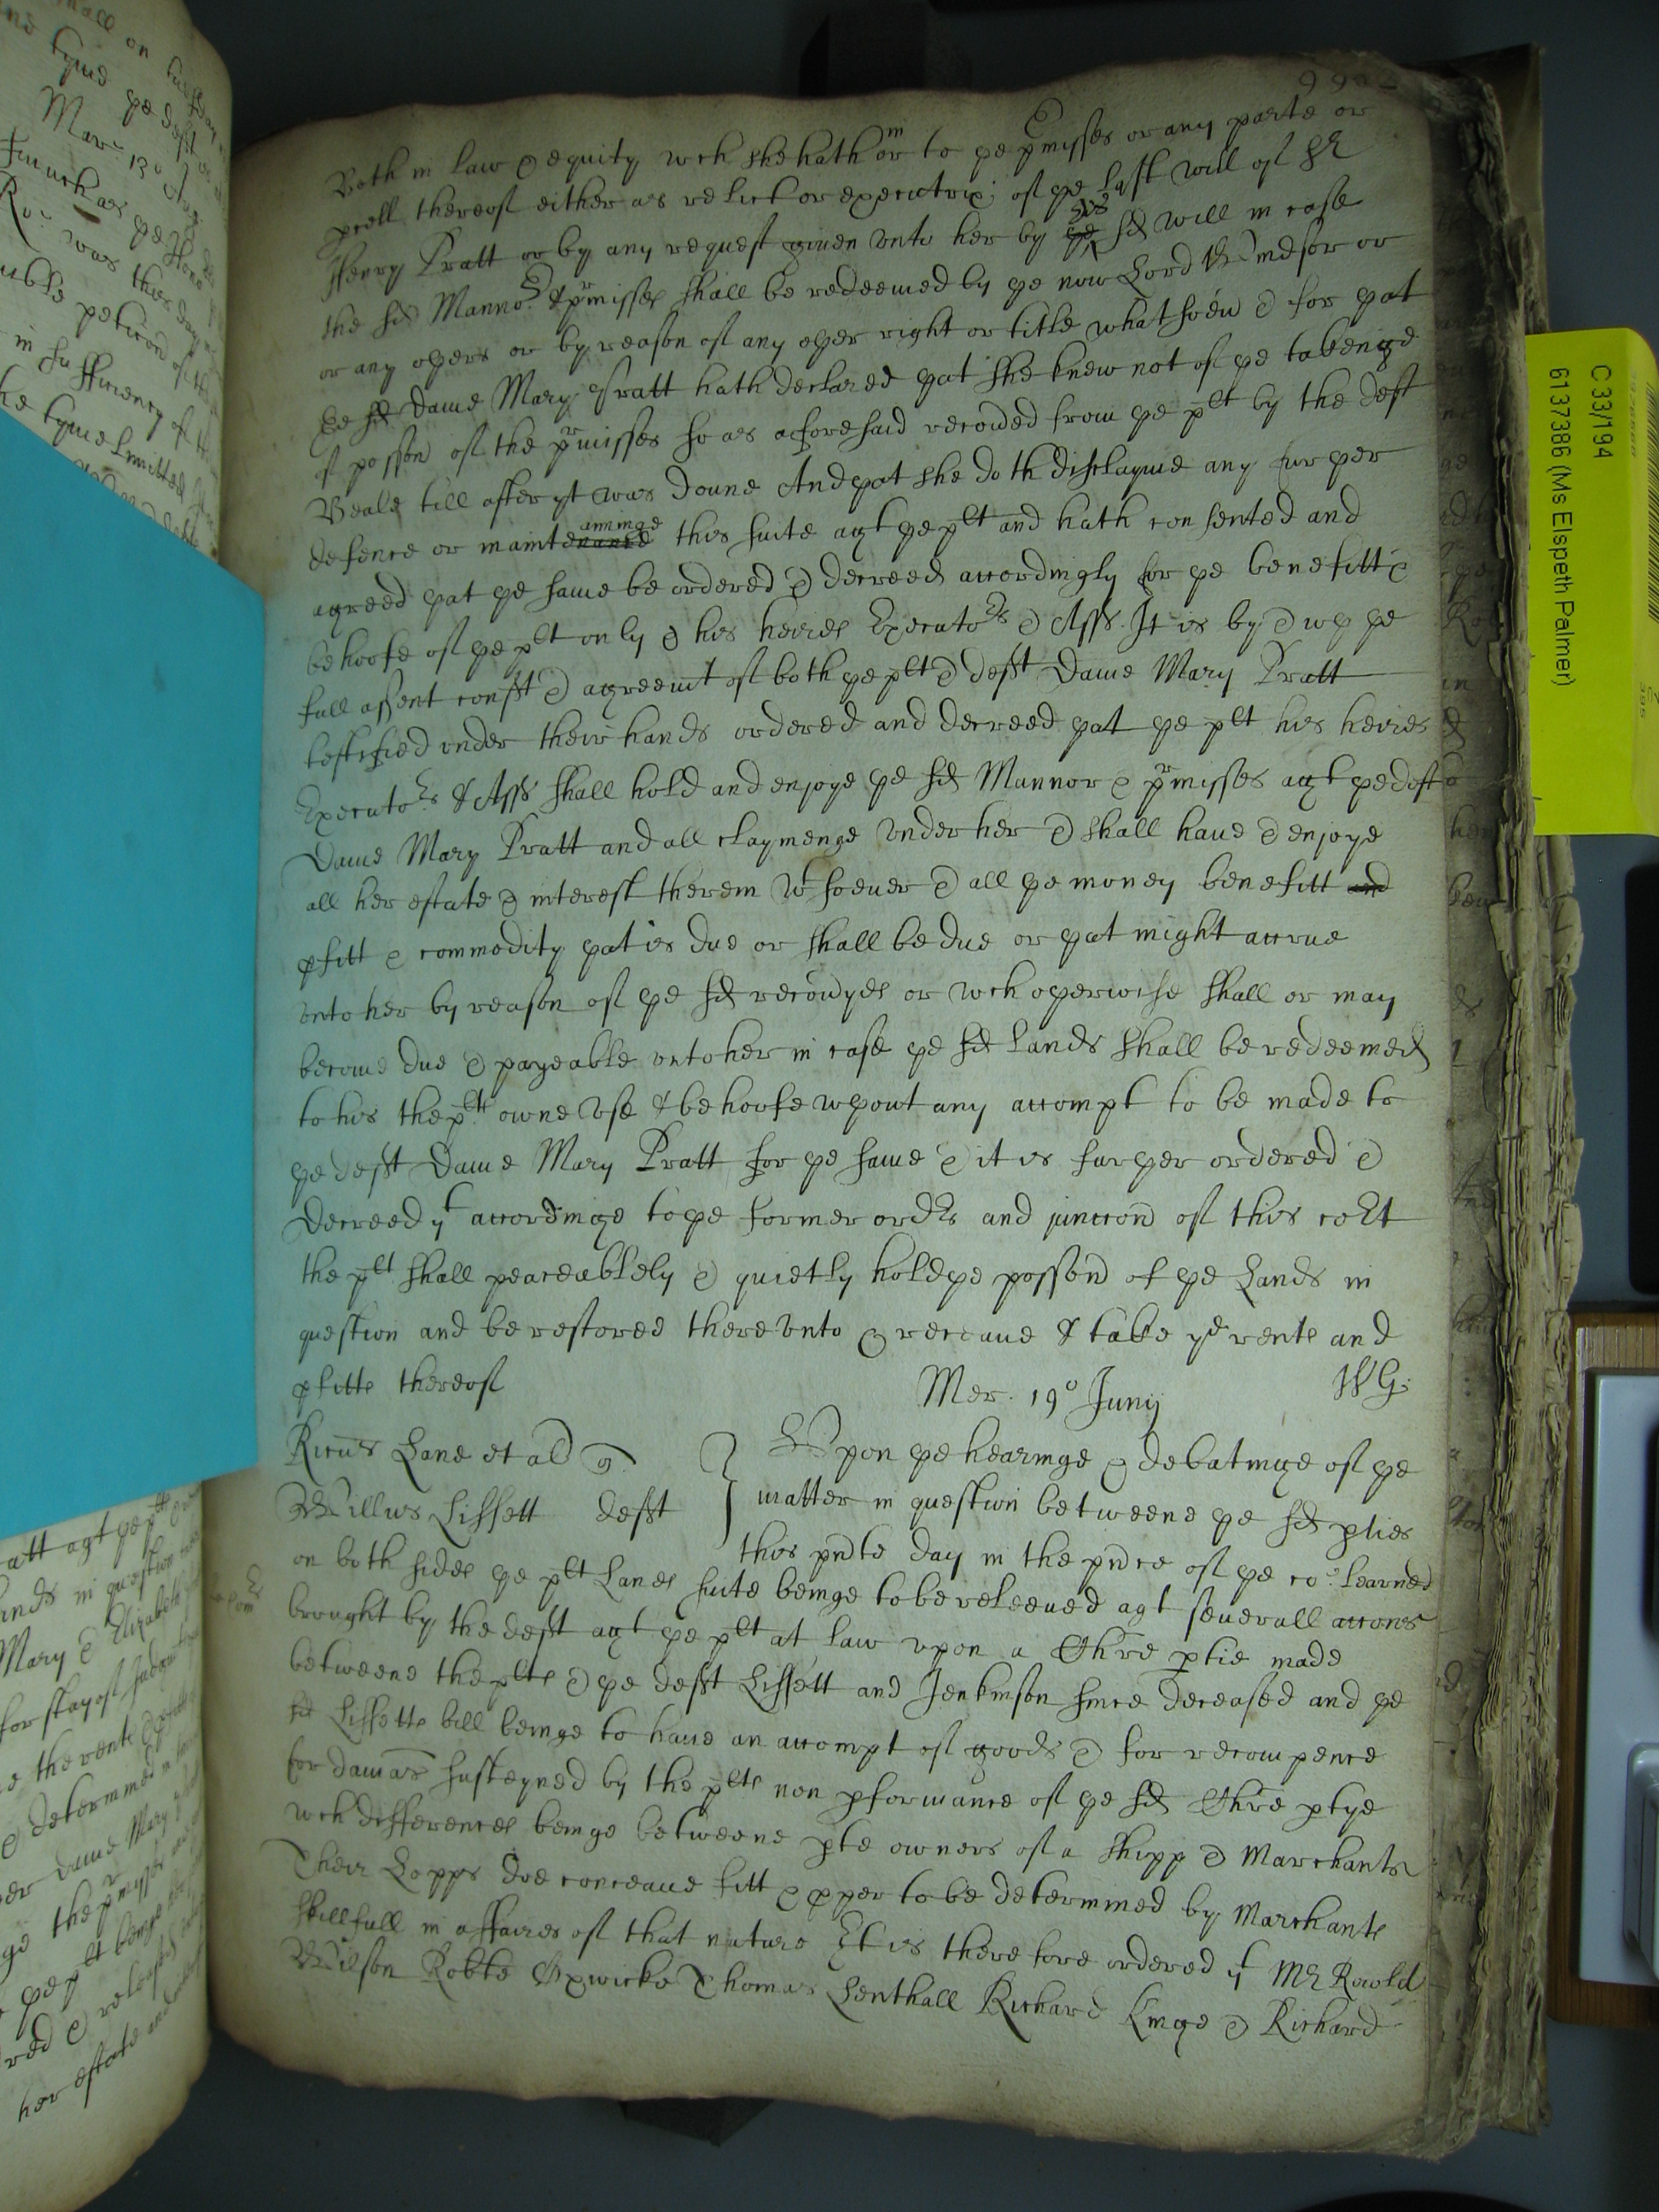 990
Both in law & equity wch she hath in or to ye pmisses or any parte or
pcell thereof either as relict or executrix of ye last will of Sr
Henry Pratt or by any request given unto her by ye his sd will in case
the sd Mannor & pmisses shall be redeemed by ye now Lord Windsor or
or any oyers or by reason of any oyer right or title whatsoeu & for yat
ye sd Dame Mary Pratt hath declared yat she knew not of ye takeinge
of posson of the pmisses so as aforesaid recoued from ye plt by the deft
Beale till after yt was doune And yat she doth disclayme any furyer
defence or maintenance aininge this suite agt ye plt and hath consented and
agreed yat ye same be ordered & decreed accordingly for ye benefitt &
behoofe of ye plt only & his heires Executors & Asss It is by & wy ye
full assent const & agreemt of both ye plt & deft Dame Mary Pratt
testified under their hands ordered and decreed yat ye plt his heires
Executors & Asss shall hold and enjoye ye sd Mannor & pmisses agt ye deft
Dame Mary Pratt and all claymenge under her & shall have & enjoye
all her estate & interest therein wtsoever & all ye money benefitt and
pfitt & commodity yat is due or shall be due or yat might accrue
unto her by reason of ye sd recouyes or wch oyerwise shall or may
become due & payeable unto her in case ye sd Lands shall be redeemed
to his the plts owne use & behoofe wyout any accompt to be made to
ye deft Dame Mary Pratt for ye same & it is furyer ordered &
Decreed yt accordinge to ye former ordrs and juncton of this cort
the plt shall peaceablely & quietly hold ye posson of ye Lands in
question and be restored thereunto & receave & take ye rents and
pfitts thereof
WG:
Mer. 19o Junij
Ricus Lane et al q
Willus Lissett deft
Upon ye hearinge & debatinge of ye
matter in question betweene ye sd pties
this pnte day in the pnce of ye co: learned
on both sides ye plt Lanes suite beinge to be releeved agt severall accons
brought by the deft agt ye plt at law upon a Chre ptie made
betweene the plts & ye deft Lissett and Jenkinson since deceased and ye
sd Lissetts bill beinge to have an accompt of goods & for recompence
for damas susteyned by the plts non pformance of ye sd Chre ptye
wch differences beinge betweene pte owners of a shipp & Marchants
Their Lopps doe conceave fitt & pper to be determined by Marchants
skillfull in affaires of that nature It is therefore ordered yt Mr Rowld
Wilson Robte Thomas Lenthall Richard Kinge & Richard
C 33/194
6137386 (Ms Elspeth Palmer)